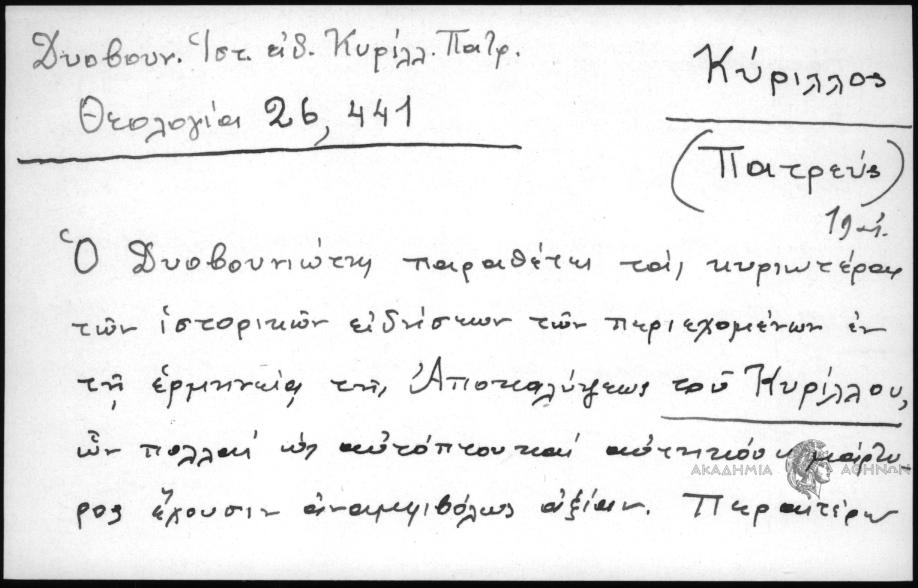 Δυοβουν. Ἱστ. εἰδ. Κυρίλλ. Πατρ.
Θεολογία 26, 441
Κύριλλος
(Πατρεύς)
19 αἰ.
Ὁ Δυοβουνιώτης παραθέτει τὰς κυριωτέρας
τῶν ἱστορικῶν εἰδήσεων τῶν περιεχομένων ἐν
τῇ ἑρμηνείᾳ τῆς Ἀποκαλύψεως τοῦ Κυρίλλου,
ὧν πολλαὶ ὡς αὐτόπτου καὶ αὐτηκόου μάρτυ
ρος ἔχουσιν ἀναμφιβόλως ἀξίαν. Περαιτέρω
ΑΚΑΔΗΜΙΑ ΑΘΗΝΩΝ